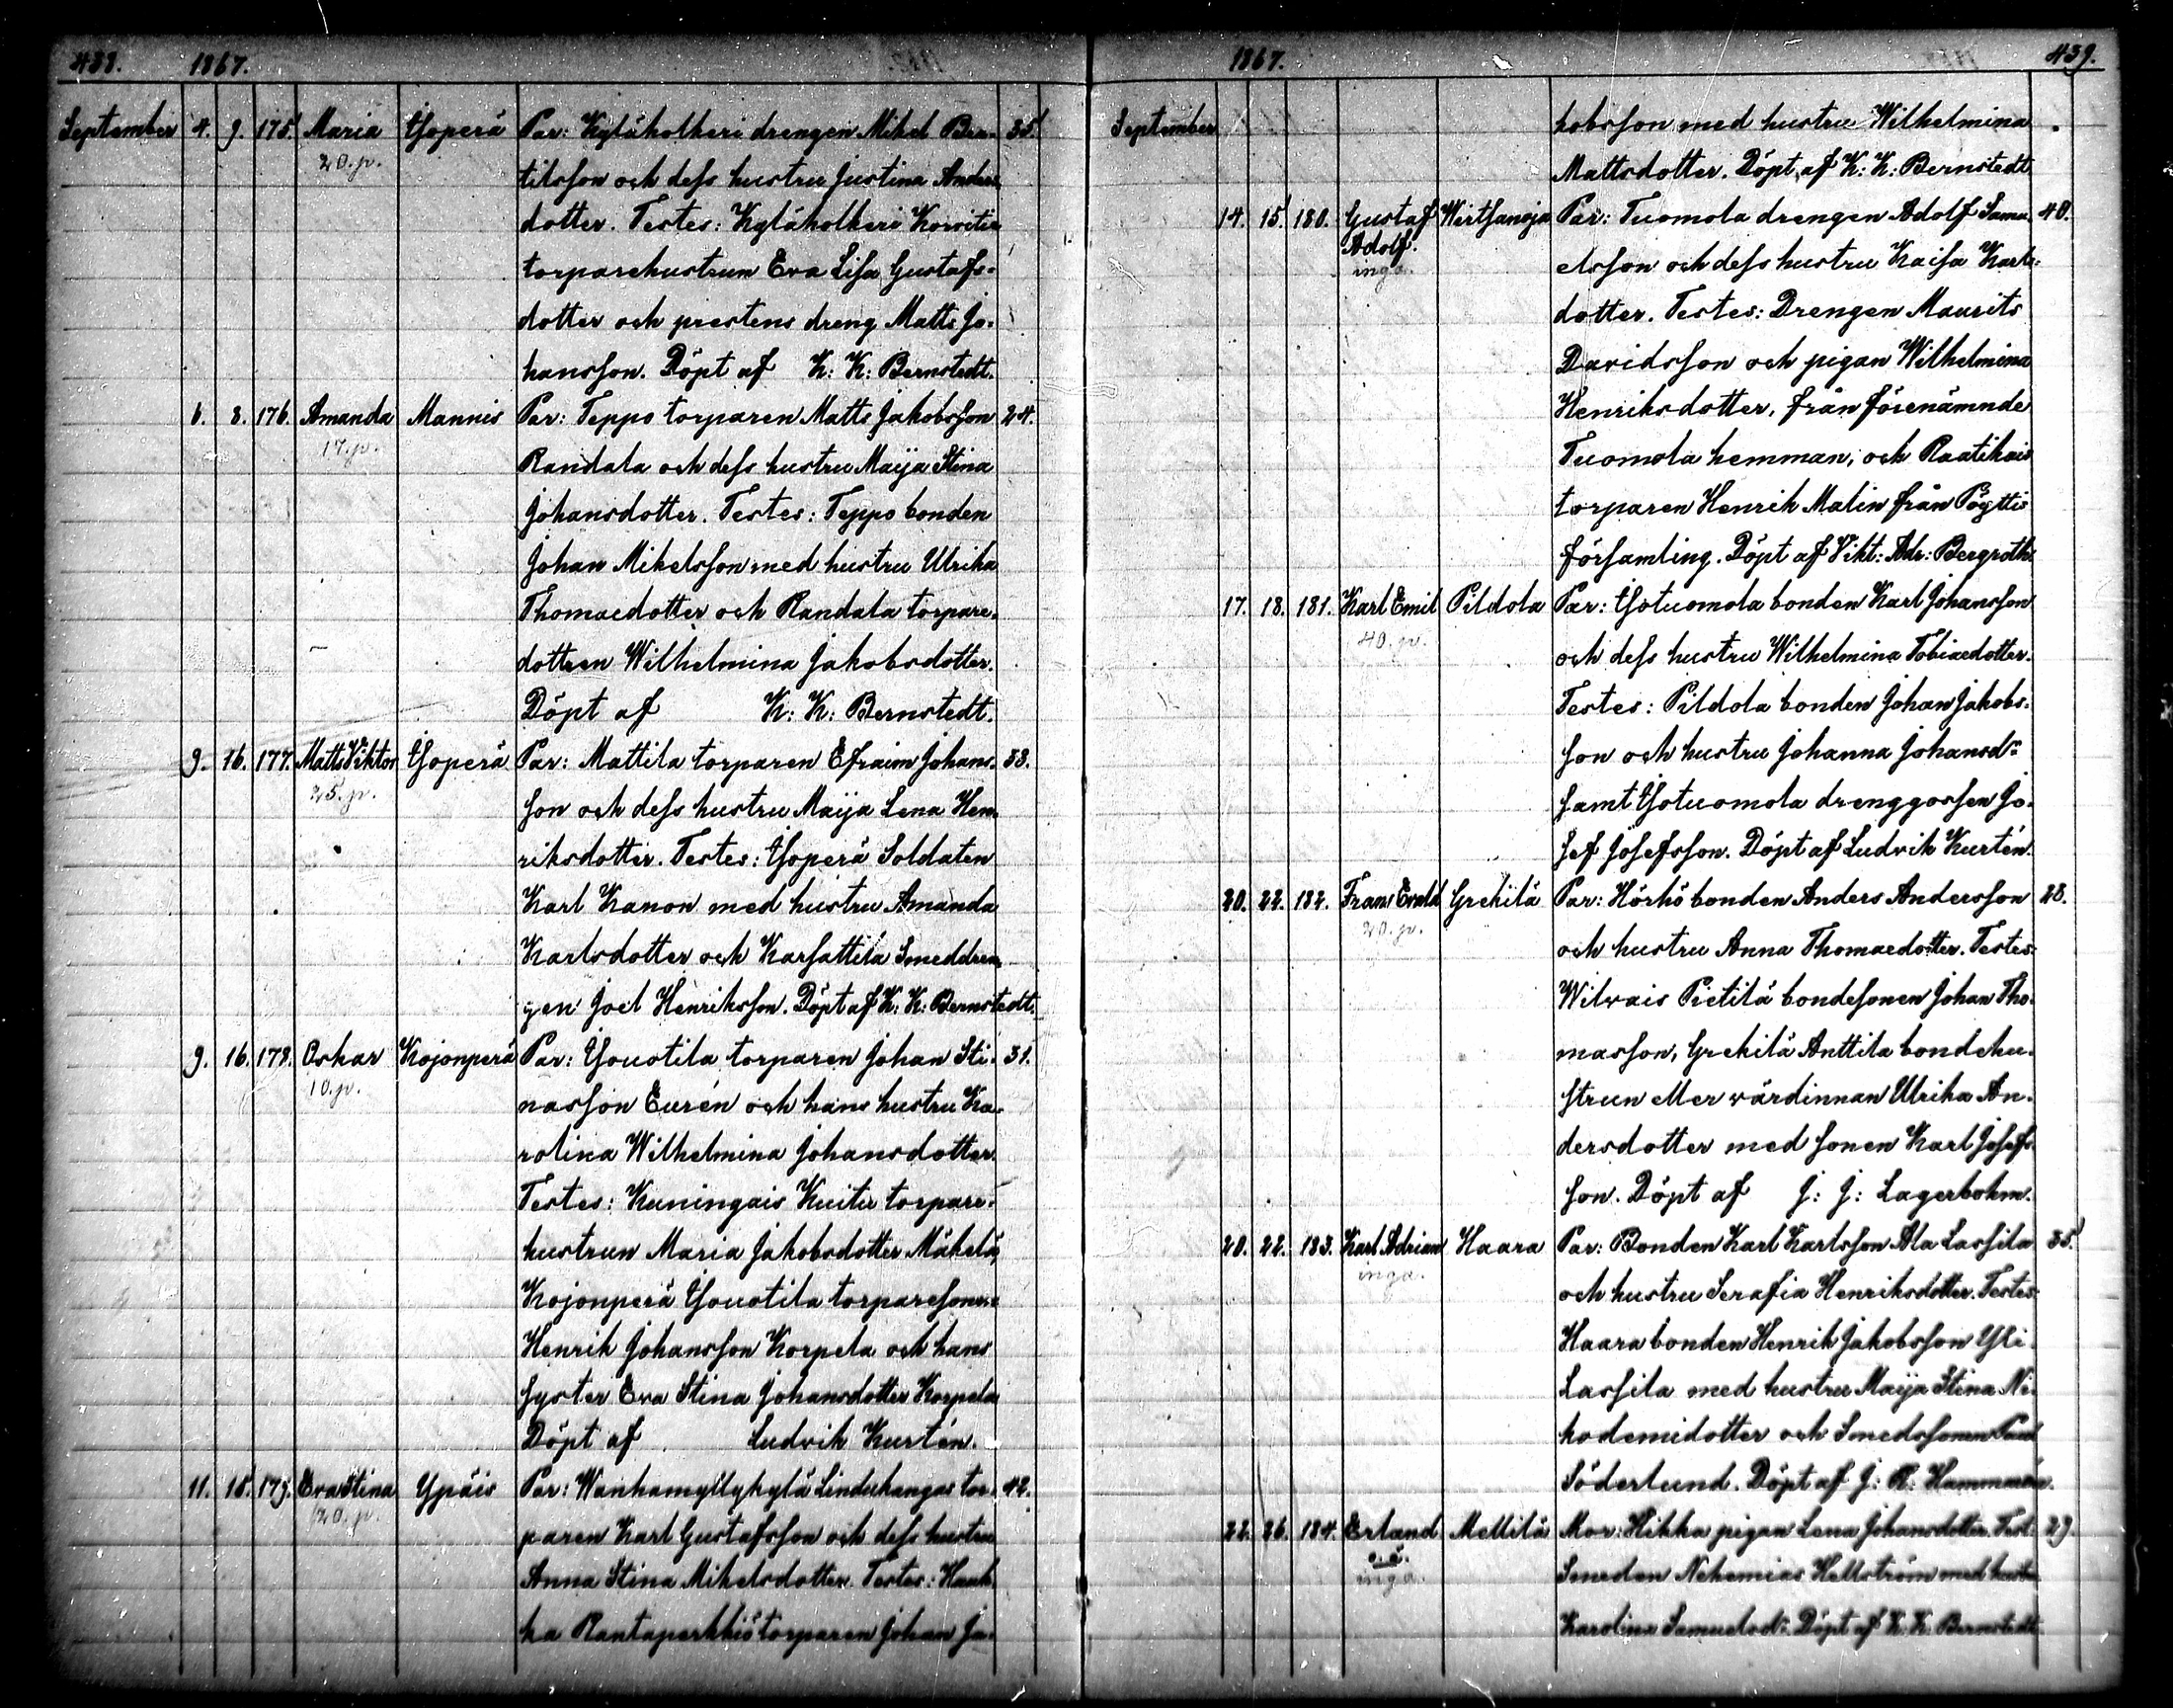 438. 1867.
September 4. 9. 175. Maria Yöperä Par: Kyläkolkeri drengen Mikel Ber- 35.
20. p.
tilsson och dess hustru Justina Anders
dotter. Testes: Kyläholkeri
torparehustrun Eva Lisa Gustafs-
dotter och prestens dreng Matts Jo-
hansson. Döpt af K: K: Bernstedt.
6. 8. 176. Amanda Mannis Par: Teppo torparen Matts Jakobsson 24.
17. p.
Randala och dess hustru Maija Stina
Johansdotter. Testes: Teppo bonden
Johan Mikelsson med hustru Ulrika
Thomaedotter och Randala torpare-
dottren Wilhelmina Jakobsdotter.
Döpt af K: K: Bernstedt.
9. 16. 177. Matts Viktor Yöperä Par: Mattila torparen Efraim Johans- 38.
25. p.
son och dess hustru Maija Lena Hen-
riksdotter. Testes: Yöperä Soldaten
Karl Kanon med hustru Amanda
Karlsdotter och Karsattila Smeddren-
gen Joel Henriksson. Döpt af K: K: Bernstedt.
9. 16. 178. Oskar Kojonperä Par: Isouotila torparen Johan Sti- 31.
10. p.
nasson Eurén och hans hustru Ka-
rolina Wilhelmina Johansdotter
Testes: Kuningais Kuitu torpare-
hustrun Maria Jakobsdotter Mäkelä,
Kojonperä Isouotila torparesonen
Henrik Johansson Korpela och hans
syster Eva Stina Johansdotter Korpela
Döpt af Ludvik Kurtén.
11. 15. 179. Eva Stina Ypäis Par: Wanhamyllykylä Lindukangas tor- 42.
20. p.
paren Karl Gustafsson och dess hustru
Anna Stina Mikelsdotter. Testes: Hauk
ka Rantaperkkiö torparen Johan Ja-
1867. 439.
September kobsson med hustru Wilhelmina
Mattsdotter. Döpt af K: K: Bernstedt
14. 15. 180. Gustaf Wirtsanoja Par: Tuomola drengen Adolf Samu- 40.
Adolf.
inga.
elsson och dess hustru Kaisa Karls-
dotter. Testes: Drengen Maurits
Davidsson och pigan Wilhelmina
Henriksdotter, från förenämnde
Tuomola hemman, och Raatikais
torparen Henrik Malin från Pöytis
församling. Döpt af Vikt: Adr: Bergroth.
17. 18. 181. Karl Emil Pildola Par: Isotuomola bonden Karl Johansson
40. p.
och dess hustru Wilhelmina Tobiaedotter.
Testes: Pildola bonden Johan Jakobs-
son och hustru Johanna Johansdr
samt Isotuomola drenggossen Jo-
sef Josefsson. Döpt af Ludvik Kurtén.
20. 22. 182. Frans Evald Grekilä Par: Hörhö bonden Anders Andersson 28.
20. p.
och hustru Anna Thomaedotter. Testes:
Wilvais Pietilä bondesonen Johan Tho-
masson, Grekilä Anttila bondehu-
strun eller värdinnan Ulrika An-
dersdotter med sonen Karl Josefs-
son. Döpt af J: J: Lagerbohm.
20. 22. 183. Karl Adrian Haara Par: Bonden Karl Karlsson Ala Lassila 35.
inga.
och hustru Serafia Henriksdotter. Testes:
Haara bonden Henrik Jakobsson Yli-
Lassila med hustru Maija Stina Ni-
kodemidotter och Smedssonen Paul
Söderlund. Döpt af J: R: Hammarén.
22. 26. 184. Erland Mellilä Mor: Hikka pigan Lena Johansdotter. Test: 29.
o.ä.
inga.
Smeden Nehemias Hellström med hustru
Karolina Samuelsdr. Döpt af K: K: Bernstedt.